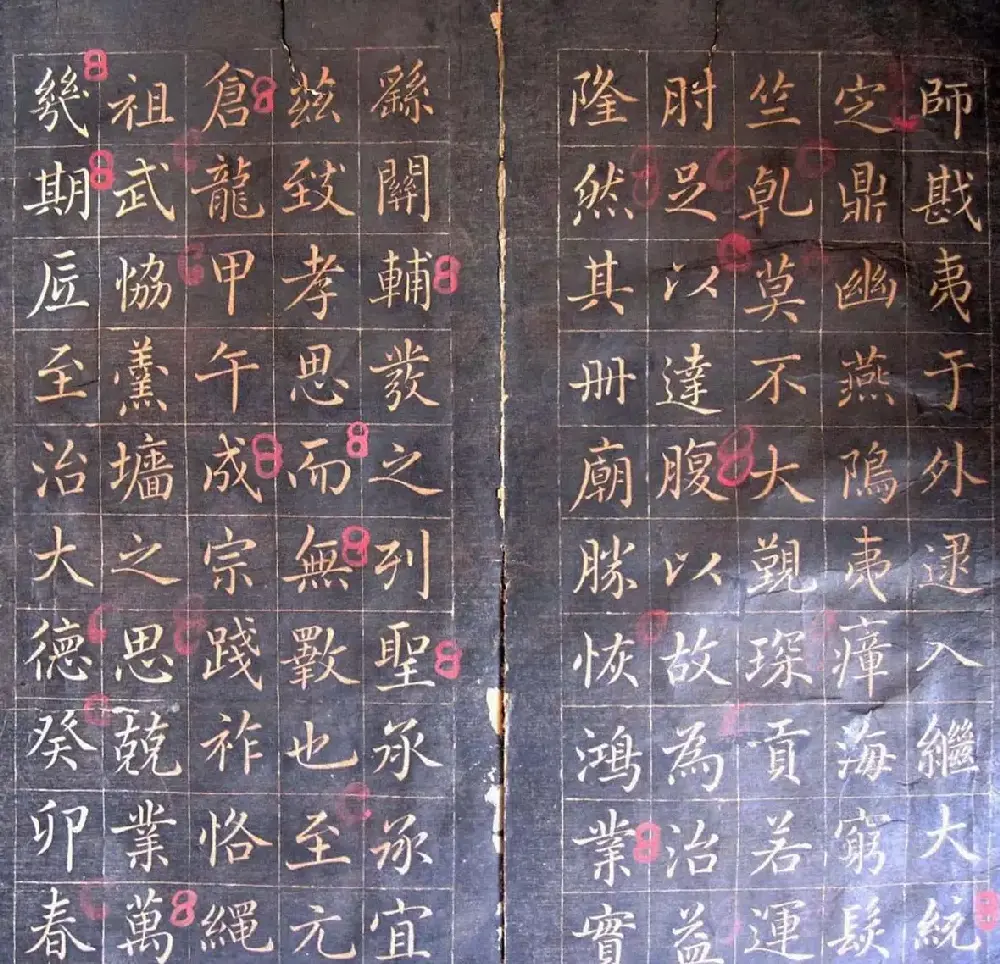 師戡夷于外逮入繼大統
定鼎幽燕隝夷瘴海窮髮
竺乹莫不大覲琛貢若運
肘足以達腹以故為治益
隆然其册廟勝恢鴻業實
繇關輔發之列聖承承宜
茲致孝思而無斁也至元
倉龍甲午成宗踐祚恪繩
祖武恊羹墻之思兢業萬
幾期厎至治大德癸卯春